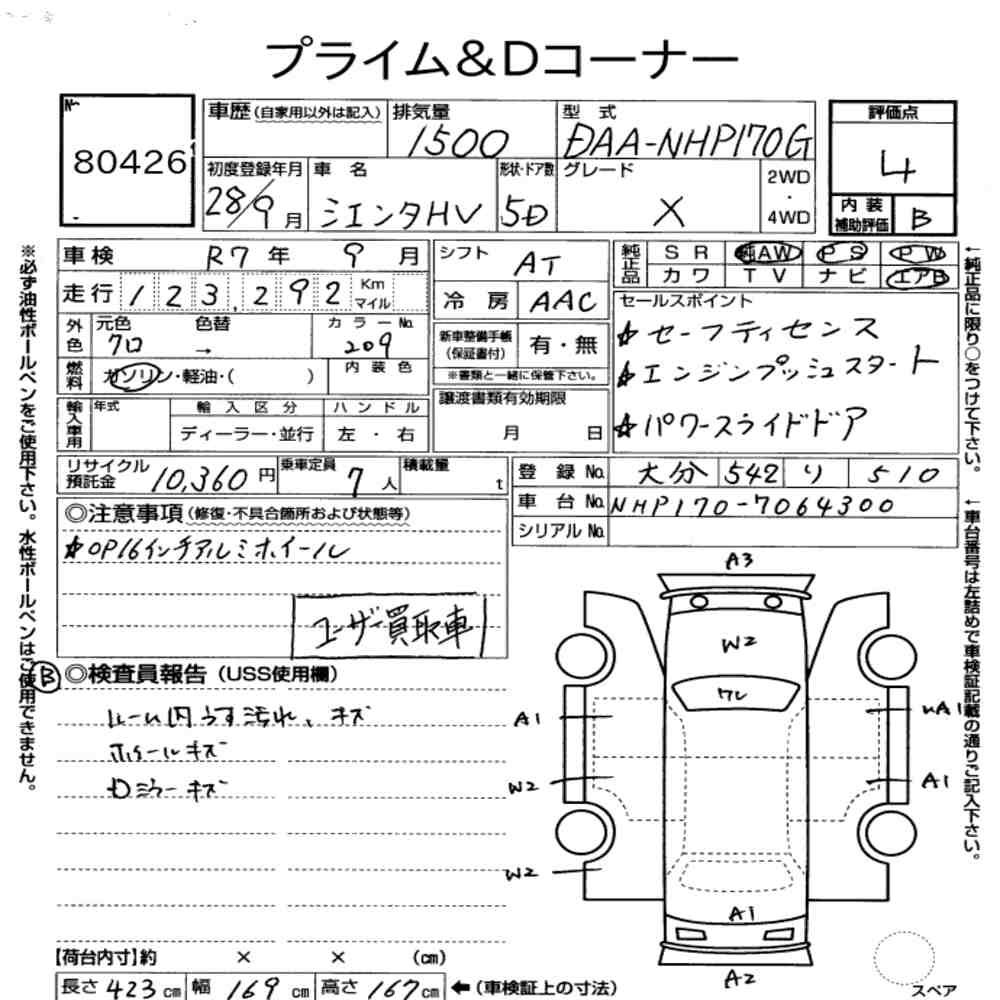 プライム&Dコーナー
No.
80426
車歴(自家用以外は記入)
排気量
1500
型 式
DAA-NHP170G
評価点
4
内装補助評価 B
初度登録年月
28/9月
車 名
シエンタHV
形状・ドア数
5D
グレード
X
2WD・4WD
車検 R7年 9月
走行 123,292 Km マイル
外色
元色
クロ
色替
→
カラーNo.
209
燃料
ガソリン・軽油・( )
内装色
輸入車用
年式
輸入区分
ディーラー・並行
ハンドル
左・右
シフト AT
冷房 AAC
新車整備手帳(保証書付)
有・無
※書類と一緒に保管下さい。
譲渡書類有効期限
月 日
純正品
SR 純AW PS PW
カワ TV ナビ エアB
セールスポイント
☆セーフティセンス
☆エンジンプッシュスタート
☆パワースライドドア
リサイクル預託金 10,360円
乗車定員 7人
積載量 t
登録No. 大分 542 り 510
車台No. NHP170-7064300
シリアルNo.
◎注意事項(修復・不具合箇所および状態等)
☆OP16インチアルミホイール
ユーザー買取車
B
◎検査員報告(USS使用欄)
ルーム内うす汚れ、キズ
ホイールキズ
Dミラーキズ
A3
W2
ワレ
A1
A1
W2
A1
W2
A1
A2
スペア
【荷台内寸】約 × × (cm)
長さ 423cm 幅 169cm 高さ 167cm ←(車検証上の寸法)
※必ず油性ボールペンをご使用下さい。水性ボールペンはご使用できません。
←純正品に限り○をつけて下さい。
←車台番号は左詰めで車検証記載の通りご記入下さい。